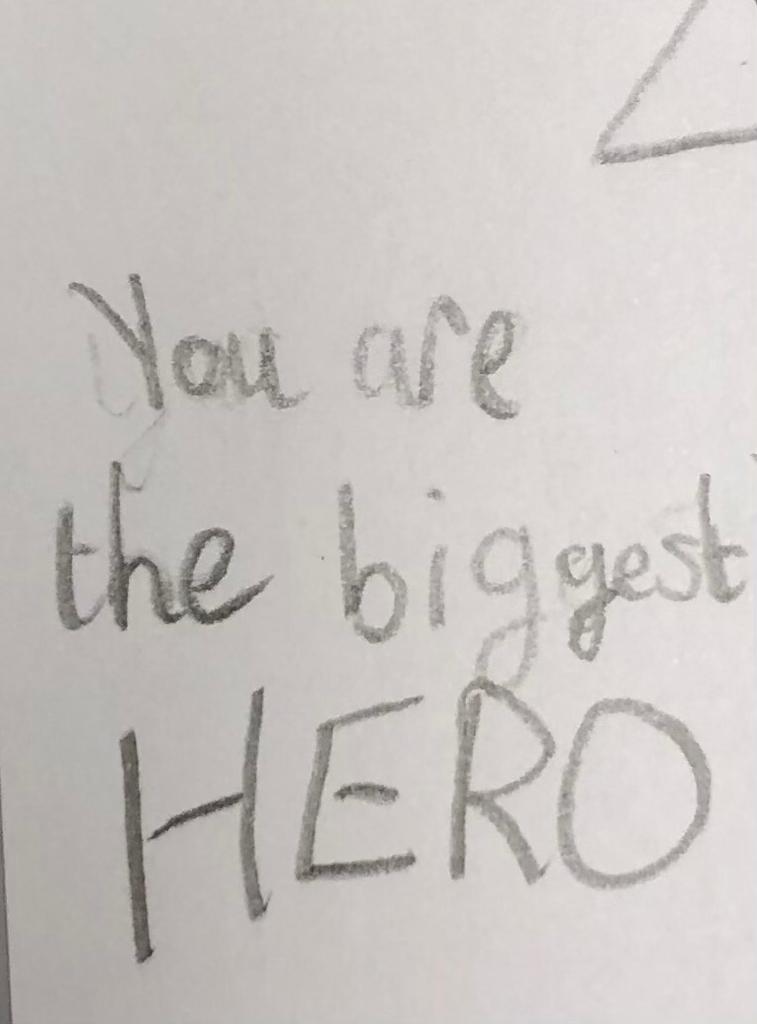 You are
the biggest
HERO